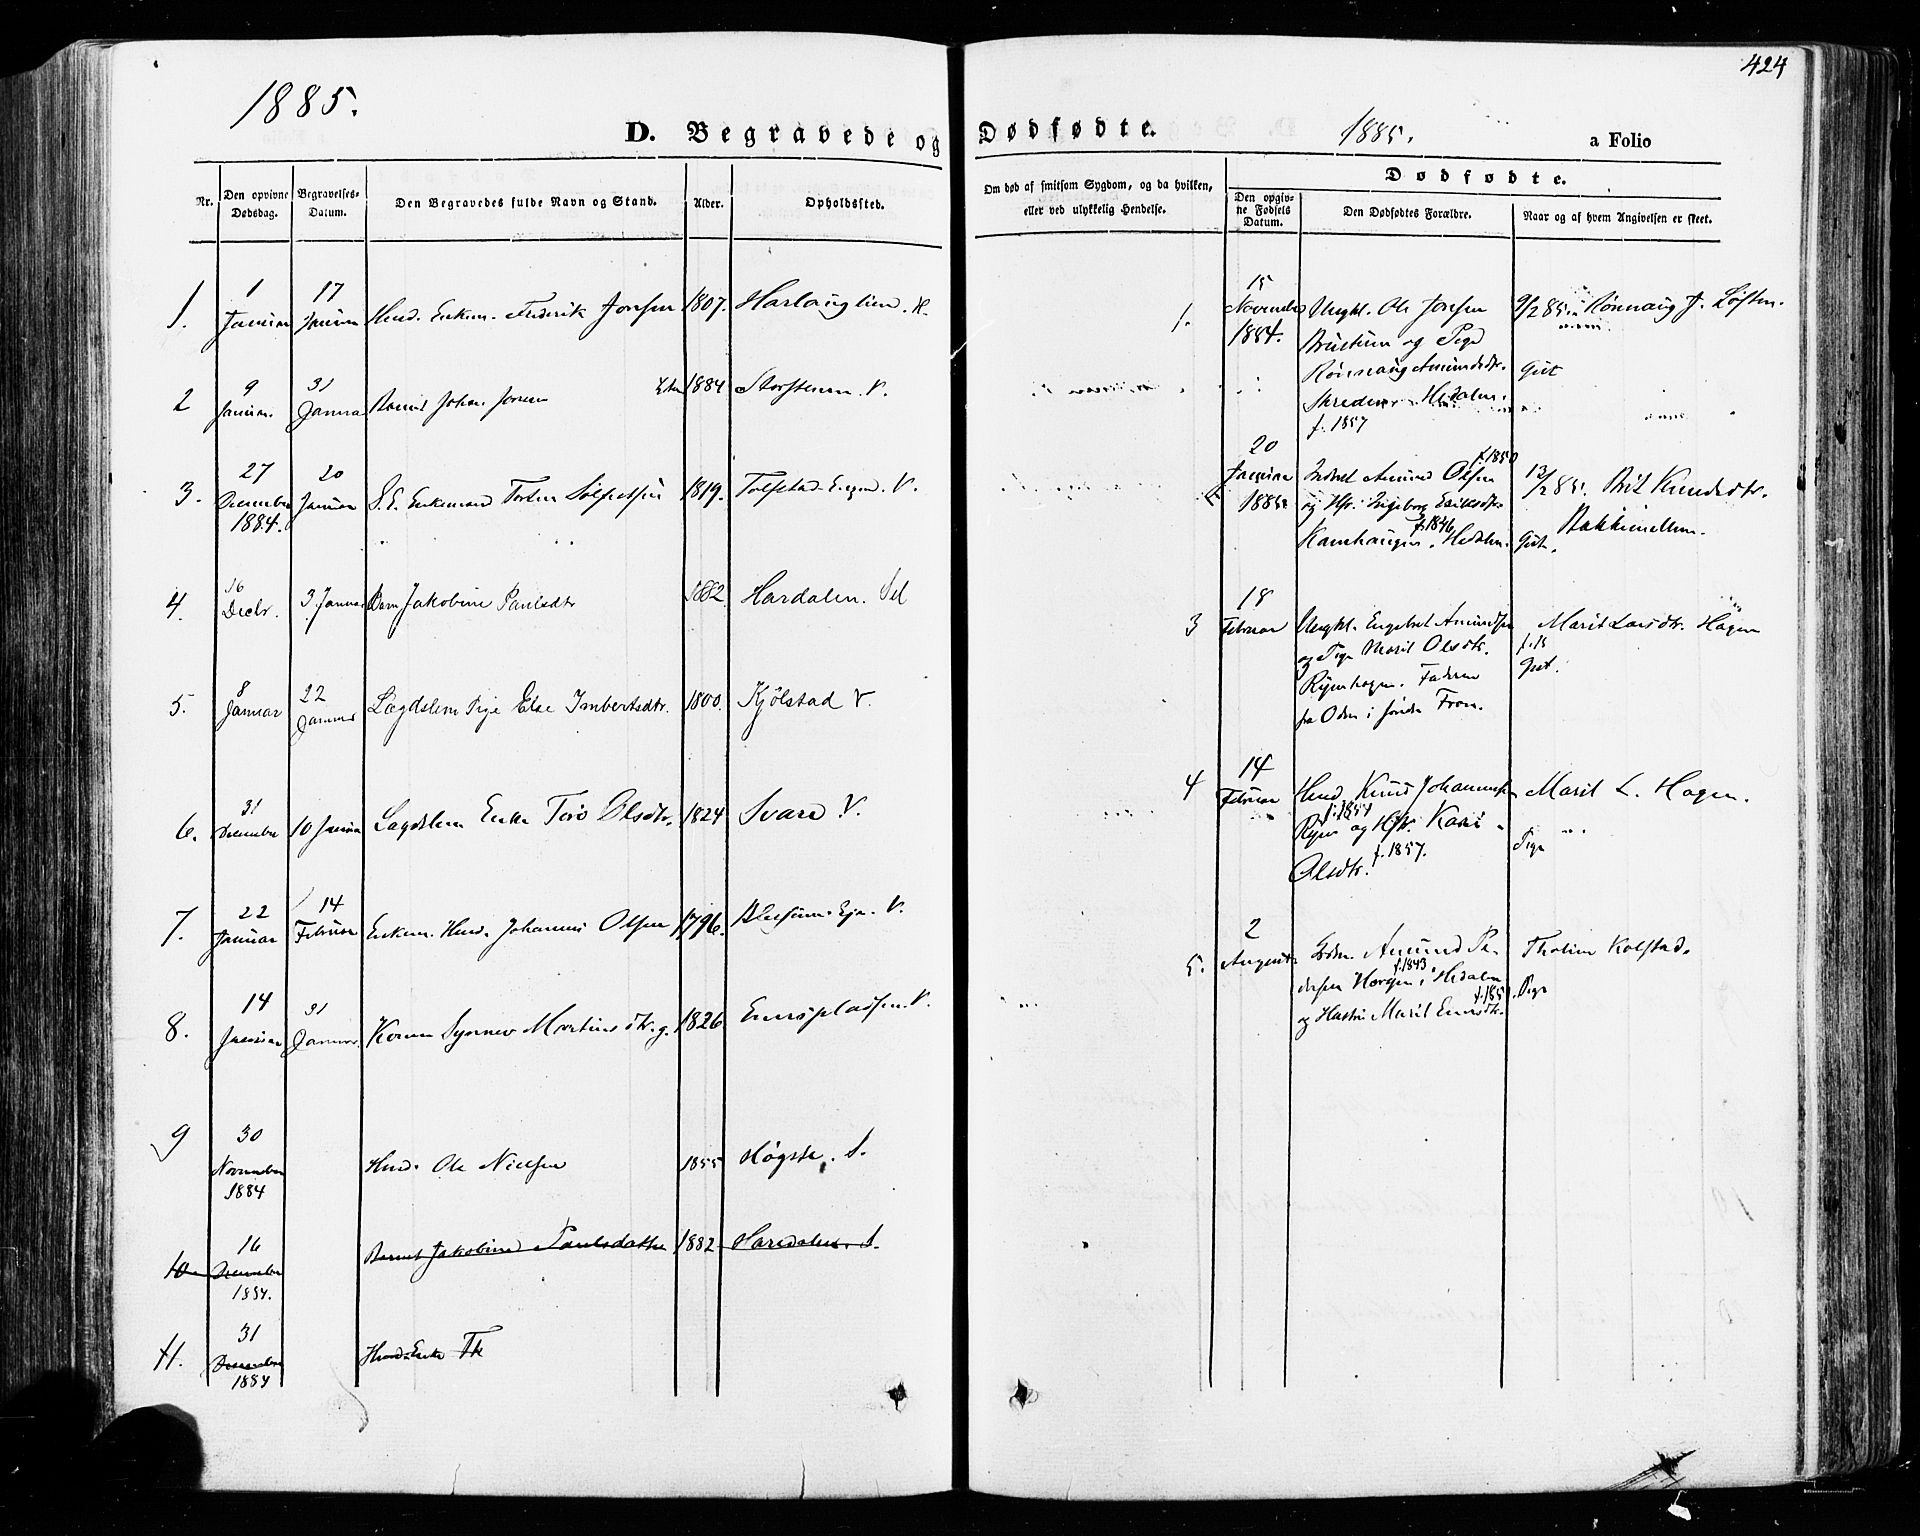 424
1885.
D. Begravede og
Dødfødte.
1885.
a Folio
Nr.
Den opgivne Dødsdag.
Begravelses-Datum.
Den Begravedes fulde Navn og Stand.
Alder.
Opholdssted.
Om død af smitsom Sygdom, og da hvilken,
eller ved ulykkelig Hendelse.
Dødfødte.
Den opgiv-
ne Fødsels
Datum.
Den Dødfødtes Forældre.
Naar og af hvem Angivelsen er skeet.
1. 1 Januar 17 Januar Husd. Enkem. Frederik Jonsen 1807. Harlauglien. H.
2 9 Januar. 31 Januar Barnet Johan 1884 Storstenen. V.
3. 27 December 1884. 20 Januar S. E. Enkemand Torsten 1819. Tolfstad Engen. V.
4. 16 Decbr. 3 Januar Barn Jakobine Paulsdtr 1882 Hardalen. Sel
5. 8 Januar 22 Januar Lægdslem Pige Else Imbertsdtr. 1800. Kjølstad V.
6. 31 December 10 Januar Lægdslem Enke Olsdtr. 1824 Svare V.
7. 22 Januar 14 Februar Enkem. Husd. Johannes Olsen 1796. V.
8. 14 Januar 31 Januar Konen Synnev Martinsdtr. 1826 V.
9 30 November 1884 Husd. Ole Nielsen 1855 Høgste. S.
10 16 December 1884. Barnet Jakobine Paulsdatter 1882 Haredalen. S.
11. 31 December 1884 Husd. Enke Th
1. 15 November 1884. Ungkl. Ole Jonsen
Brustuen og Pige
Rønnaug Amundsdtr.
Skreden Hedalen.
f. 1857
9/2 85. Rønnaug J. Løften.
Gut
20 Januar 1885 Amund Olsen f. 1850
og Hst. Ingeborg Eriksdtr.
f. 1846
Hedalen.
13/2 85. Brit Knudsdtr.
Bakkemellem.
Gut.
3 18 Februar Ungkl. Engebret Amundsen
og Pige Marit Olsdtr.
Ryenhagen. Faderen
fra Oden i søndre Fron.
Marit Larsdtr. Hagen
Gut.
4 14 Februar Husd. Knud Johannesen
f. 1854
Ryen og Hst. Kari
Olsdtr. f. 1857.
Marit L. Hagen.
Pige
5. 2 August Amund Pe-
dersen f. 1843 i Hedalen
og Hustru Marit
Tholine Kolstad.
Pige